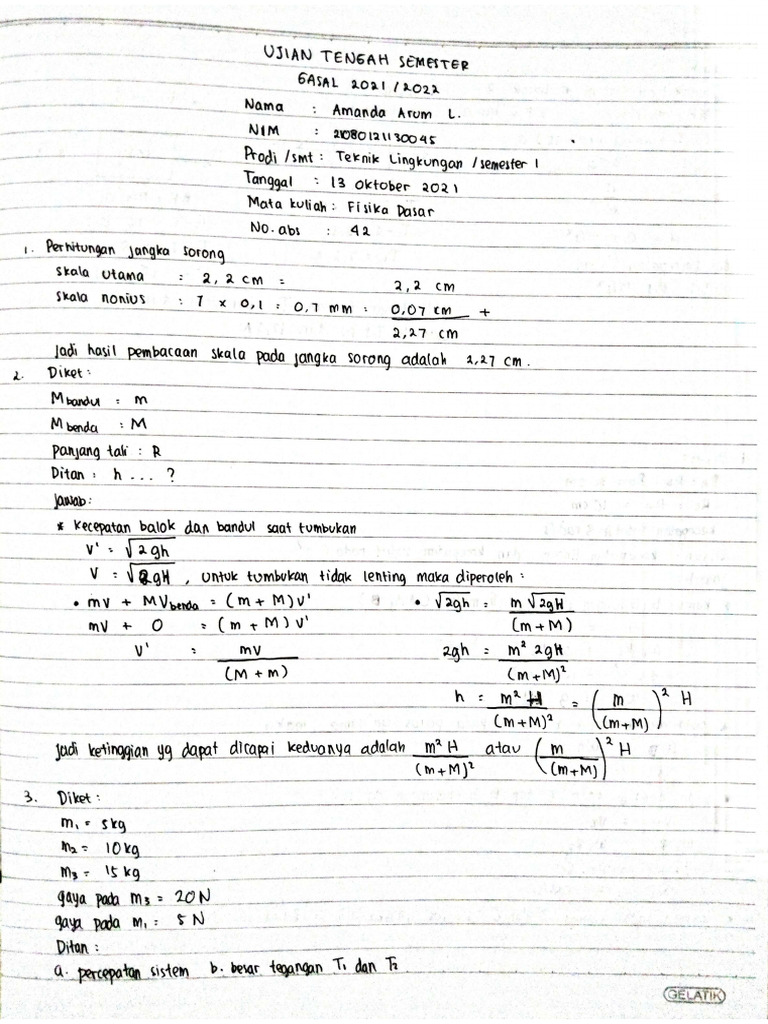 UJIAN TENGAH SEMESTER
GASAL 2021/2022
Nama : Amanda Arum L.
NIM : 21080121130045
Prodi/smt : Teknik Lingkungan / semester 1
Tanggal : 13 Oktober 2021
Mata kuliah : Fisika Dasar
No. abs : 42
1. Perhitungan jangka sorong
skala utama : 2,2 cm = 2,2 cm
skala nonius : 7 x 0,1 = 0,7 mm = 0,07 cm +
2,27 cm
Jadi hasil pembacaan skala pada jangka sorong adalah 2,27 cm.
2. Diket :
M bandul : m
M benda : M
panjang tali : R
Ditan : h ... ?
Jawab :
* kecepatan balok dan bandul saat tumbukan
V' = √2gh
V = √2gH , untuk tumbukan tidak lenting maka diperoleh :
• mv + MV benda = (m + M) v'
mv + 0 = (m + M) v'
V' = mv / (M + m)
• √2gh = m√2gH / (m + M)
2gh = m² 2gH / (m + M)²
h = m² H / (m + M)² = (m / (m + M))² H
Jadi ketinggian yg dapat dicapai keduanya adalah m² H / (m + M)² atau (m / (m + M))² H
3. Diket :
m₁ = 5 kg
m₂ = 10 kg
m₃ = 15 kg
gaya pada m₃ = 20 N
gaya pada m₁ = 5 N
Ditan :
a. percepatan sistem b. besar tegangan T₁ dan T₂
GELATIK